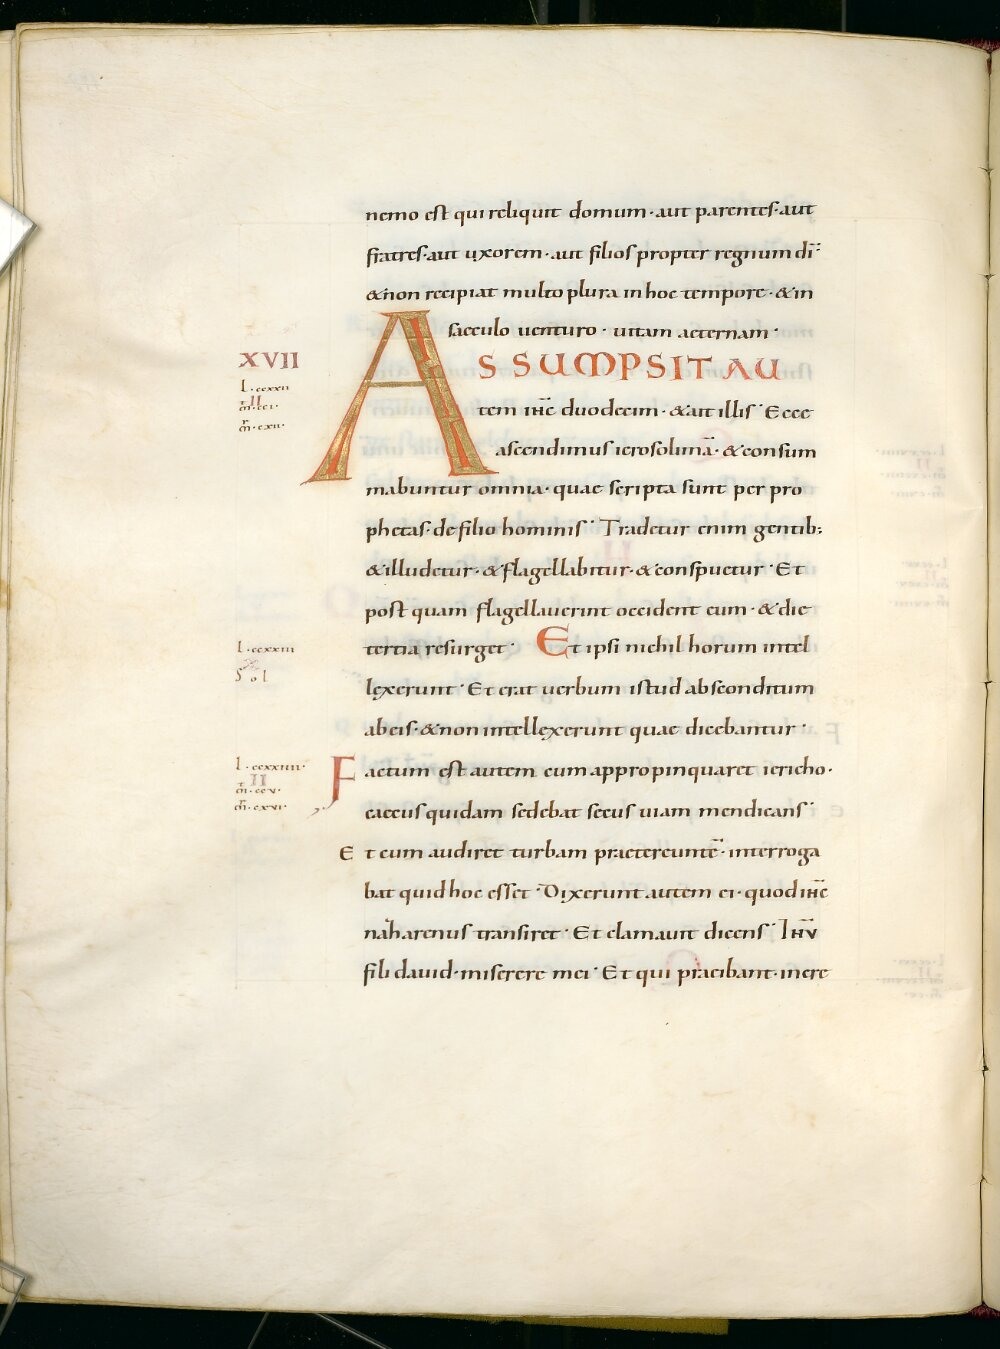 nemo est qui reliquit domum · aut parentes · aut
fratres · aut uxorem · aut filios propter regnum dī ·
& non recipiat multo plura in hoc tempore · & in
saeculo uenturo · uitam aeternam ·
XVII
ASSUMPSIT AU
L · ccxxii
II
m̄ · cci ·
m̄ · cxii ·
tem ihc̄ duodecim · & ait illis · Ecce
ascendimus ierosolimā · & consum
mabuntur omnia · quae scripta sunt per pro
phetas · de filio hominis · Tradetur enim gentib;
& illudetur · & flagellabitur · & conspuetur · Et
post quam flagellauerint occident eum · & die
tertia resurget · Et ipsi nichil horum intel
L · ccxxiii
Sol
lexerunt · Et erat uerbum istud absconditum
ab eis · & non intellexerunt quae dicebantur ·
L · ccxxiiii ·
II
m̄ · ccv ·
m̄ · cxvi ·
Factum est autem cum appropinquaret iericho ·
caecus quidam sedebat secus uiam mendicans ·
Et cum audiret turbam praetereuntē · interroga
bat quid hoc esset · Dixerunt autem ei · quod ihc̄
nazarenus transiret · Et clamauit dicens · Ihū
fili dauid · miserere mei · Et qui praeibant · incre